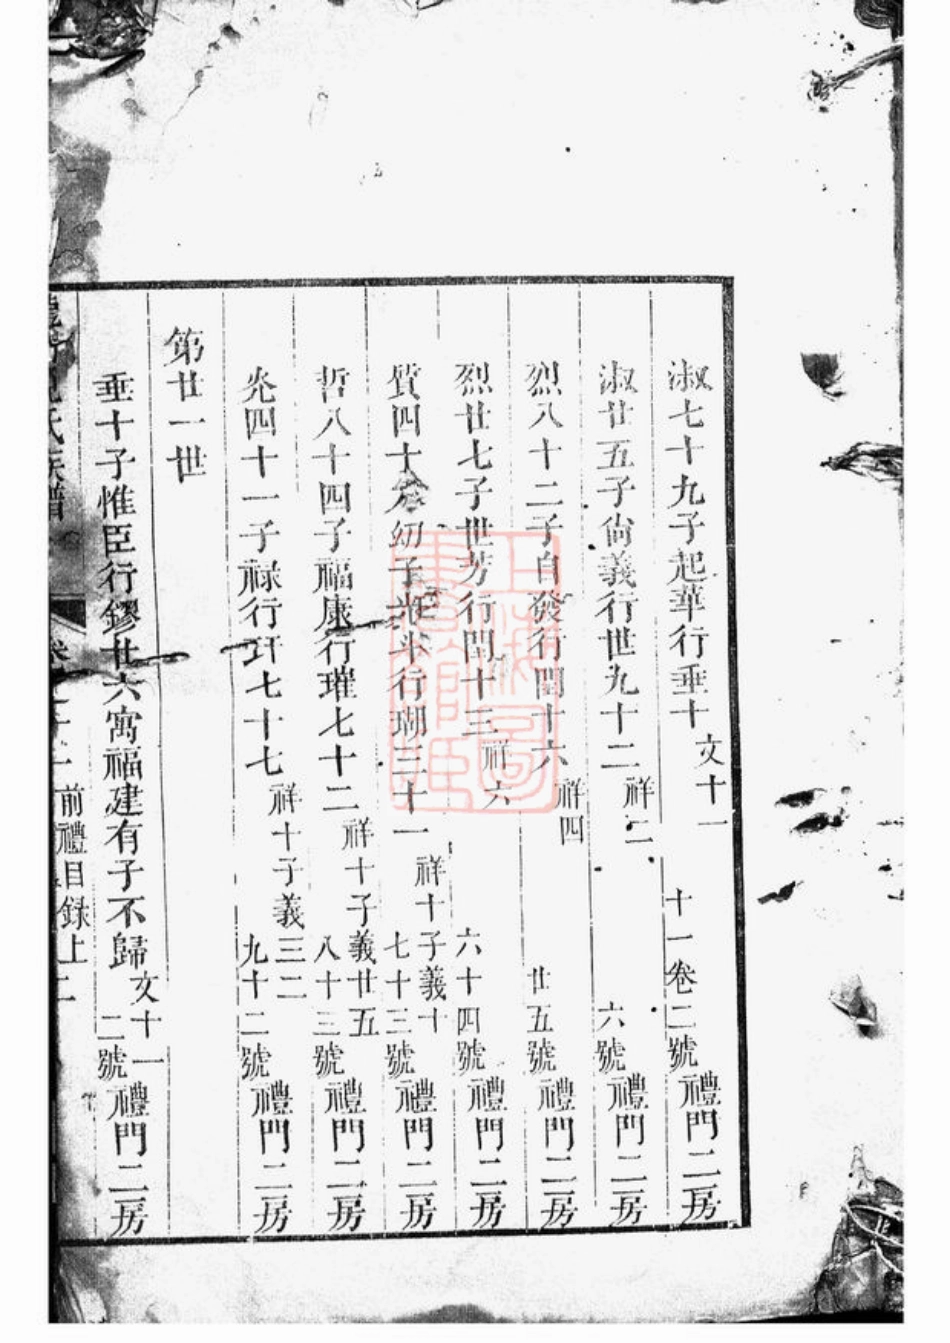 淑七十九子起華行垂十文十一 十一卷二號禮門二房
淑廿五子尙義行世九十二祥二 六號禮門二房
烈八十二子自發行閏十六祥四 廿五號禮門二房
烈廿七子世芳行閏十三祥六 六十四號禮門二房
質四十 幼子 斗行瑚三十一祥十子義十 七十三號禮門二房
哲八十四子福康行璀七十二祥十子義廿五 八十三號禮門二房
光四十一子祿行玕七十七祥十子義三二 九十二號禮門二房
第廿一世
垂十子惟臣行鏐廿六寓福建有子不歸文十一 二號禮門二房
氏族譜 卷 前禮目録上 二
上海圖書館藏